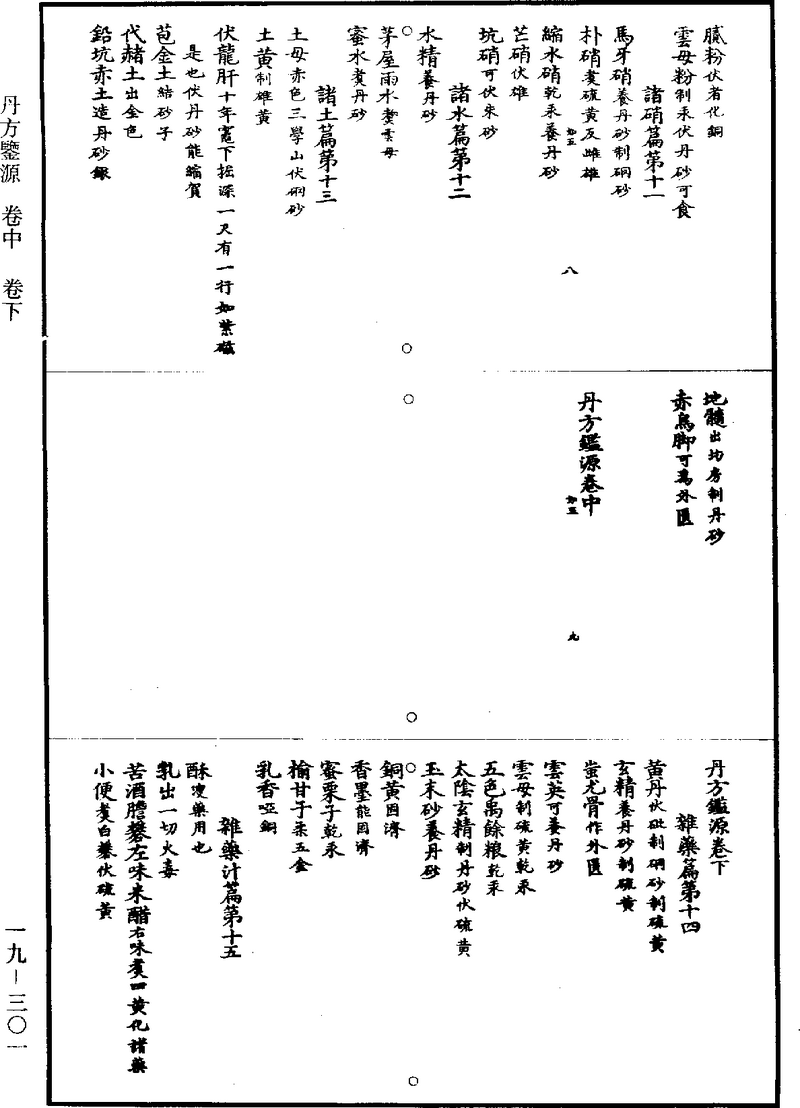 膩粉伏者化銅
雲母粉制汞伏丹砂可食
諸硝篇第十一
馬牙硝養丹砂制硇砂
朴硝煑硫黃反雌雄
縮水硝乾汞養丹砂
芒硝伏雄
坑硝可伏朱砂
諸水篇第十二
水精養丹砂
茅屋雨水煑雲母
蜜水煑丹砂
諸土篇第十三
土母赤色三學山伏硇砂
土黃制雄黃
伏龍肝十年竈下掘深一尺有一行如紫磁
是也伏丹砂能縮賀
苞金土結砂子
代赭土出金色
鉛坑赤土造丹砂銀
如五
八
地髓出均房制丹砂
赤烏脚可爲外匱
丹方鑑源卷中
如五
九
丹方鑑源卷下
雜藥篇第十四
黃丹伏砒制硇砂制硫黃
玄精養丹砂制硫黃
蚩尤骨作外匱
雲英可養丹砂
雲母制硫黃乾汞
五色禹餘粮乾汞
太陰玄精制丹砂伏硫黃
玉末砂養丹砂
銅黃固濟
香墨能固濟
蜜栗子乾汞
榆甘子柔五金
乳香啞銅
雜藥汁篇第十五
酥浸藥用也
乳出一切火毒
苦酒膽礬左味米醋右味煑四黃化諸藥
小便煑白礬伏硫黃
丹方鑒源 卷中 卷下
一九—三〇一